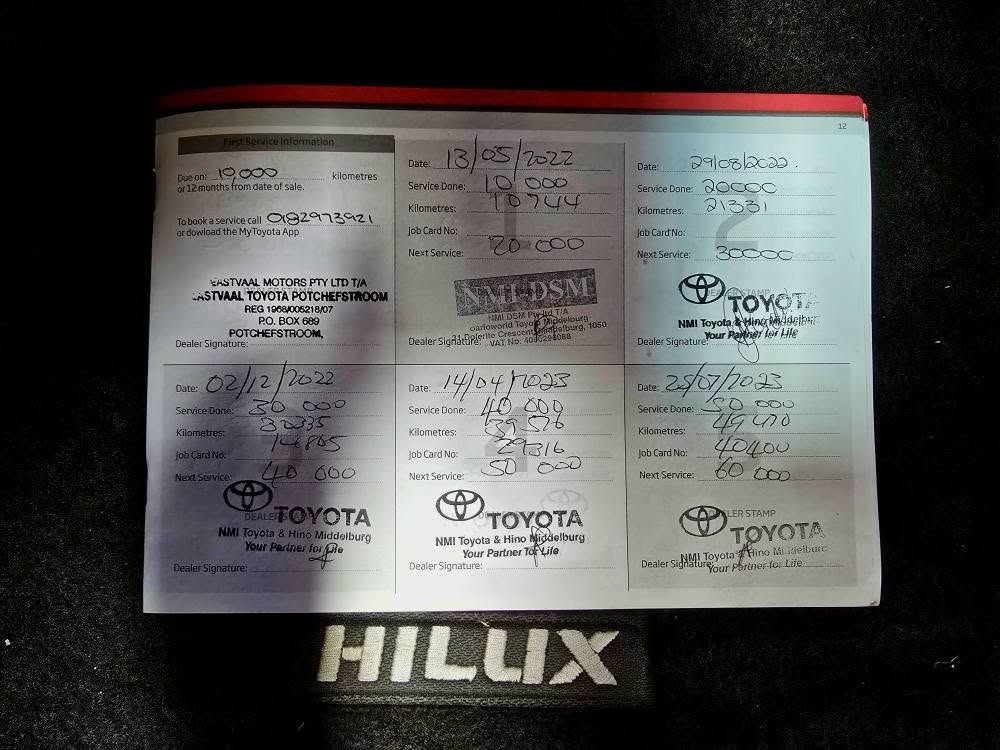 12
First Service Information
Due on: 10,000 kilometres
or 12 months from date of sale.
To book a service call 0182973921
or dowload the MyToyota App
EASTVAAL MOTORS PTY LTD T/A
EASTVAAL TOYOTA POTCHEFSTROOM
REG 1968/005218/07
P.O. BOX 689
POTCHEFSTROOM,
Dealer Signature:
Date: 13/05/2022
Service Done: 10 000
Kilometres: 10744
Job Card No:
Next Service: 20 000
NMI-DSM
NMI DSM Pty Ltd T/A
Barloworld Toyota Middelburg
21 Dolerite Crescent, Middelburg, 1050
Dealer Signature: VAT No:
Date: 29/08/2022.
Service Done: 20000
Kilometres: 21331
Job Card No:
Next Service: 30000
DEALER STAMP
TOYOTA
NMI Toyota & Hino Middelburg
Your Partner for Life
Dealer Signature:
Date: 02/12/2022
Service Done: 30 000
Kilometres: 32335
Job Card No: 14865
Next Service: 40 000
DEALER STAMP
TOYOTA
NMI Toyota & Hino Middelburg
Your Partner for Life
Dealer Signature:
Date: 14/04/2023
Service Done: 40 000
Kilometres: 39576
Job Card No: 29316
Next Service: 50 000
TOYOTA
NMI Toyota & Hino Middelburg
Your Partner for Life
Dealer Signature:
Date: 25/07/2023
Service Done: 50 000
Kilometres: 49470
Job Card No: 40400
Next Service: 60 000
DEALER STAMP
TOYOTA
NMI Toyota & Hino Middelburg
Your Partner for Life
Dealer Signature:
HILUX